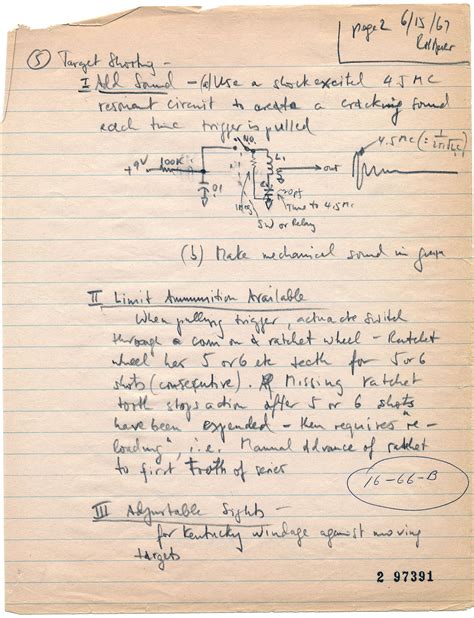 page 2 6/15/67
R H Baer
(5) Target Shooting -
I Add Sound - (a) Use a shock excited 4.5 MC
resonant circuit to create a cracking sound
each time trigger is pulled
N.O.
4.5 MC (=
+9V 100K L1 out
.01 1Meg
Tune to 4.5 MC
SW or Relay
(b) Make mechanical sound in
II Limit Ammunition Available
When pulling trigger, actuate switch
through a cam on a ratchet wheel - Ratchet
wheel has 5 or 6 etc teeth for 5 or 6
shots (consecutive). Missing ratchet
tooth stops action after 5 or 6 shots
have been expended - then requires "re-
loading", i.e. Manual Advance of ratchet
to first tooth of series
16-66-B
III Adjustable Sights -
for Kentucky windage against moving
targets
2 97391